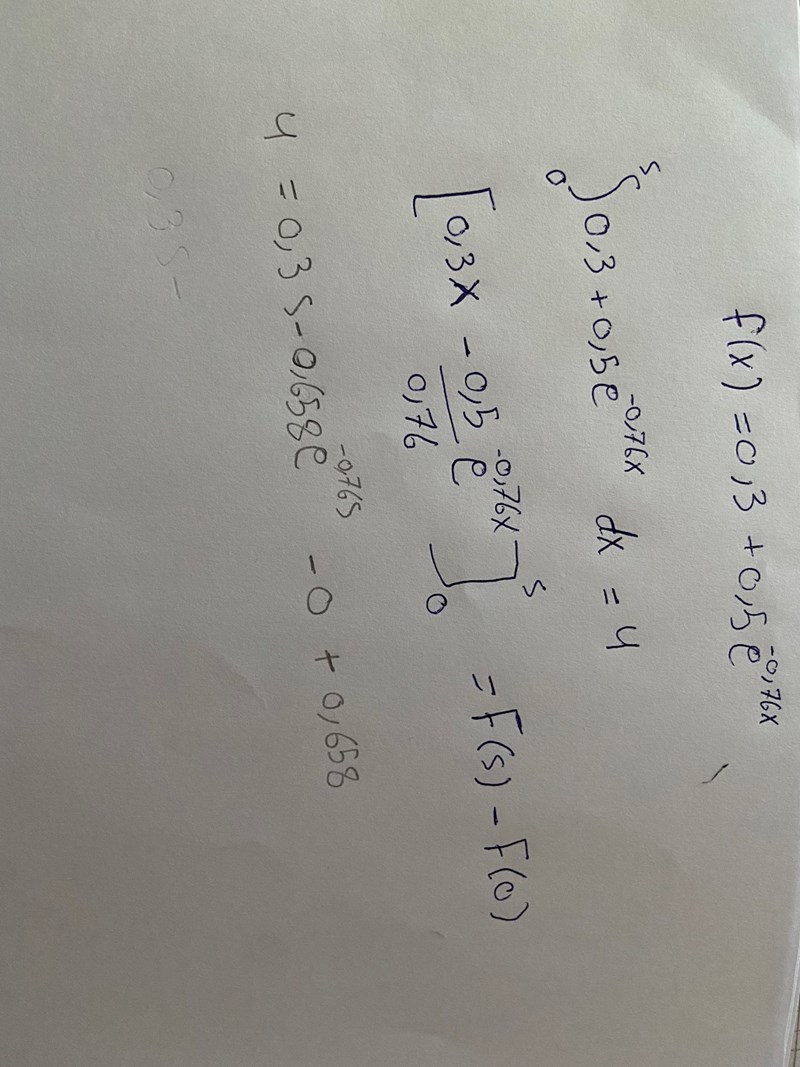 f(x) = 0,3 + 0,5e^-0,76x
∫₀^s 0,3 + 0,5e^-0,76x dx = 4
[0,3x - 0,5/0,76 e^-0,76x]₀^s = F(s) - F(0)
4 = 0,3s - 0,658e^-0,76s - 0 + 0,658
0,3s -